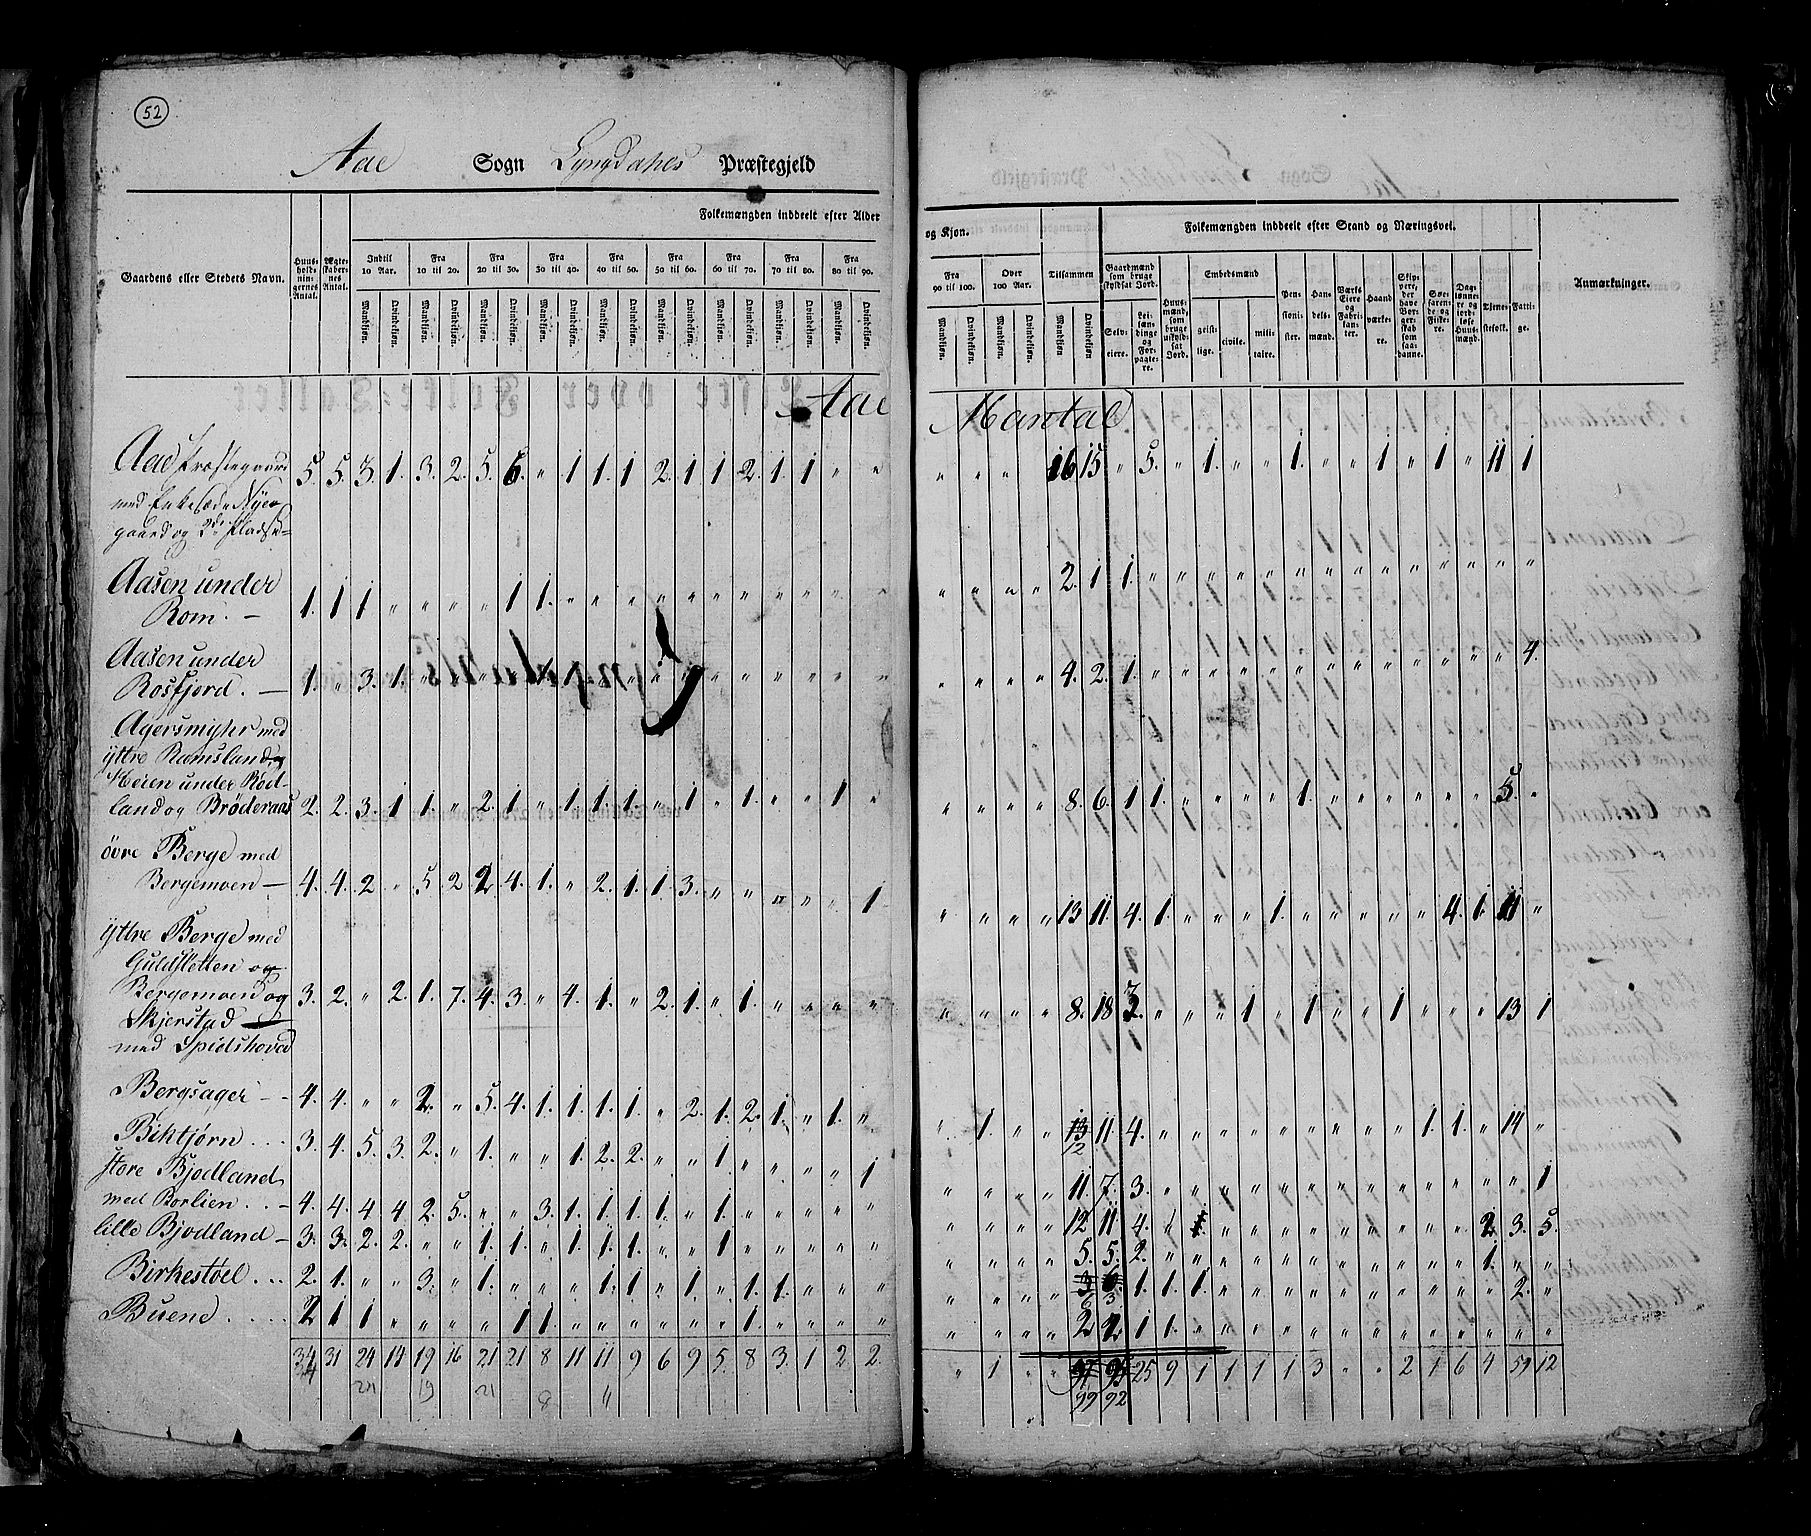 52
Aae Sogn Lyngdahls Præstegjeld
Folkemængden inddeelt efter Alder
og Kjøn.
Folkemængden inddeelt efter Stand og Næringsvei.
Gaardens eller Stedets Navn.
Huusholdningernes Antal.
Ægteskabernes Antal.
Indtil 10 Aar.
Fra 10 til 20.
Fra 20 til 30.
Fra 30 til 40.
Fra 40 til 50.
Fra 50 til 60.
Fra 60 til 70.
Fra 70 til 80.
Fra 80 til 90.
Fra 90 til 100.
Over 100 Aar.
Tilsammen
Mandkjøn. Qvindekjøn.
Gaardmænd som bruge skyldsat Jord.
Selveiere.
Leilændinge og Forpagtere.
Huusmænd, som bruge uskyldsat Jord.
Embedsmænd
geistlige. civile. militaire.
Pensionister.
Handelsmænd.
Værks Eiere og Fabrikanter.
Haandværkere.
Skippere, der have Borgerskab som saadanne.
Søefarende og Fiskere.
Daglønnere og jordløse Huusmænd.
Tienestefolk.
Fattige.
Anmærkninger.
Aae Mantal
Aae Præstegaard 5. 5. 3. 1. 3. 2. 5. 6. " 1 1. 1 2. 1 1 2. 1. 1 " " " " " " 16 15 " 5. " 1. " " 1. " " 1 " 1 " 11 1
med Enkesæde Nye
gaard og 2de Pladse
Aasen under
Rom. — 1. 1 1 " " " " 1 1. " " " " " " " " " " " " " " " 2. 1 1. " " " " " " " " " " " " "
Aasen under
Rosfjord. — 1. " 3. 1. " " " " " " " " 4. 2. 1. " " " " " " " " " " " " 4.
Agersmyhr med
ÿttre Ramsland og
Heien under Rød-
land og Brøderaas 2. 2. 3. 1 1. " 2. 1 " 1 1 1. " 1 " 1. " " 1 " " " " " 8. 6. 1 1. " " " " 1. " " " " " 5. "
övre Berge med
Bergemoen — 4. 4. 2 " 5 2 2 4. 1. " 2. 1. 1. 3. " " " " " 1 " " " " 13 11 4. 1. " " " 1. " " " " " 4. 1. 11 "
ÿttre Berge med
Guldsletten og
Bergemoen og 3. 2. " 2. 1. 7. 4. 3. " 4. 1. " 2. 1. " 1. " " " " " " " " 8. 18 3. " " " 1 " 1 " " 1 " " " 13 1
Skjerstad —
med Spidshoved
Bergsager - - 4. 4. " " 2. " 5. 4. 1. 1. 1. 1. " 2. 1. 2. 1. " 1. " " 1. " " 13 11 4. " " " " " " " " " 1. 1. " 14 "
12
Biktjørn . . . 3. 4. 5. 3. 2. " 1. " " 1. 2. 2. " " 1. " " " " 1 " " " " 11. 7. 3. " " " " " " " " " " " " " 1
store Bjodland
med Borlien . . - 4. 4. 4. 4 2. 5. " " 3. 1. 1. 1. 1. " 1. " " " " " " " " " 12 11 4. 2 3. 5.
lille Bjodland - 3. 3. 2. 2. " " 1. 1. " 1. 1. 1. " " 1 " " " " " " " " " 5. 5. 2. " " " " " " " " " " " 1. " "
Birkestöel . . . 2. 1. " " 3. " 1. " " " 1. 1 " 1. " 1. 1. " " " " " " " 1. 1. 1. " " " " " " " " " " 2. "
6 3
Buene . . . . . 2 1 1 " " " " 1 1. " " " " " " 1. " " " " " " " " 2 2 1 1. " " " " " " " " " " " " "
34 31 24 14 19 16 21 21 8 11 11 9 6 9 5. 8 3. 1 2 2. " 1 " " 25 9 1 1 1 1 3 " " 2 1 6 4 59 12
99 92
19 21 8 11